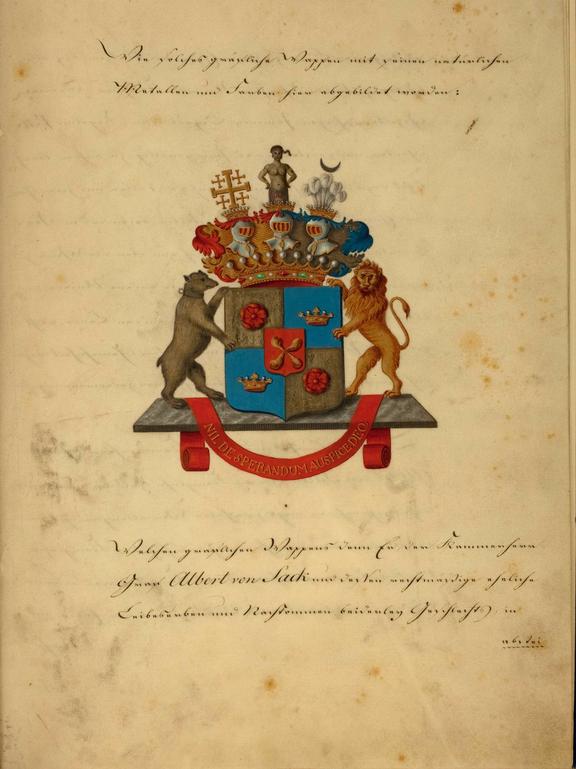 Wie solches gräfliche Wappen mit seinen natürlichen
Metallen und Farben hier abgebildet worden:
NIL DE SPERANDUM AUSPICE DEO
Welchen gräflichen Wappens denn Er der Kammerherr
Graf Albert von Sack und dessen rechtmässige eheliche
Leibeserben und Nachkommen beiderley Geschlechts, in